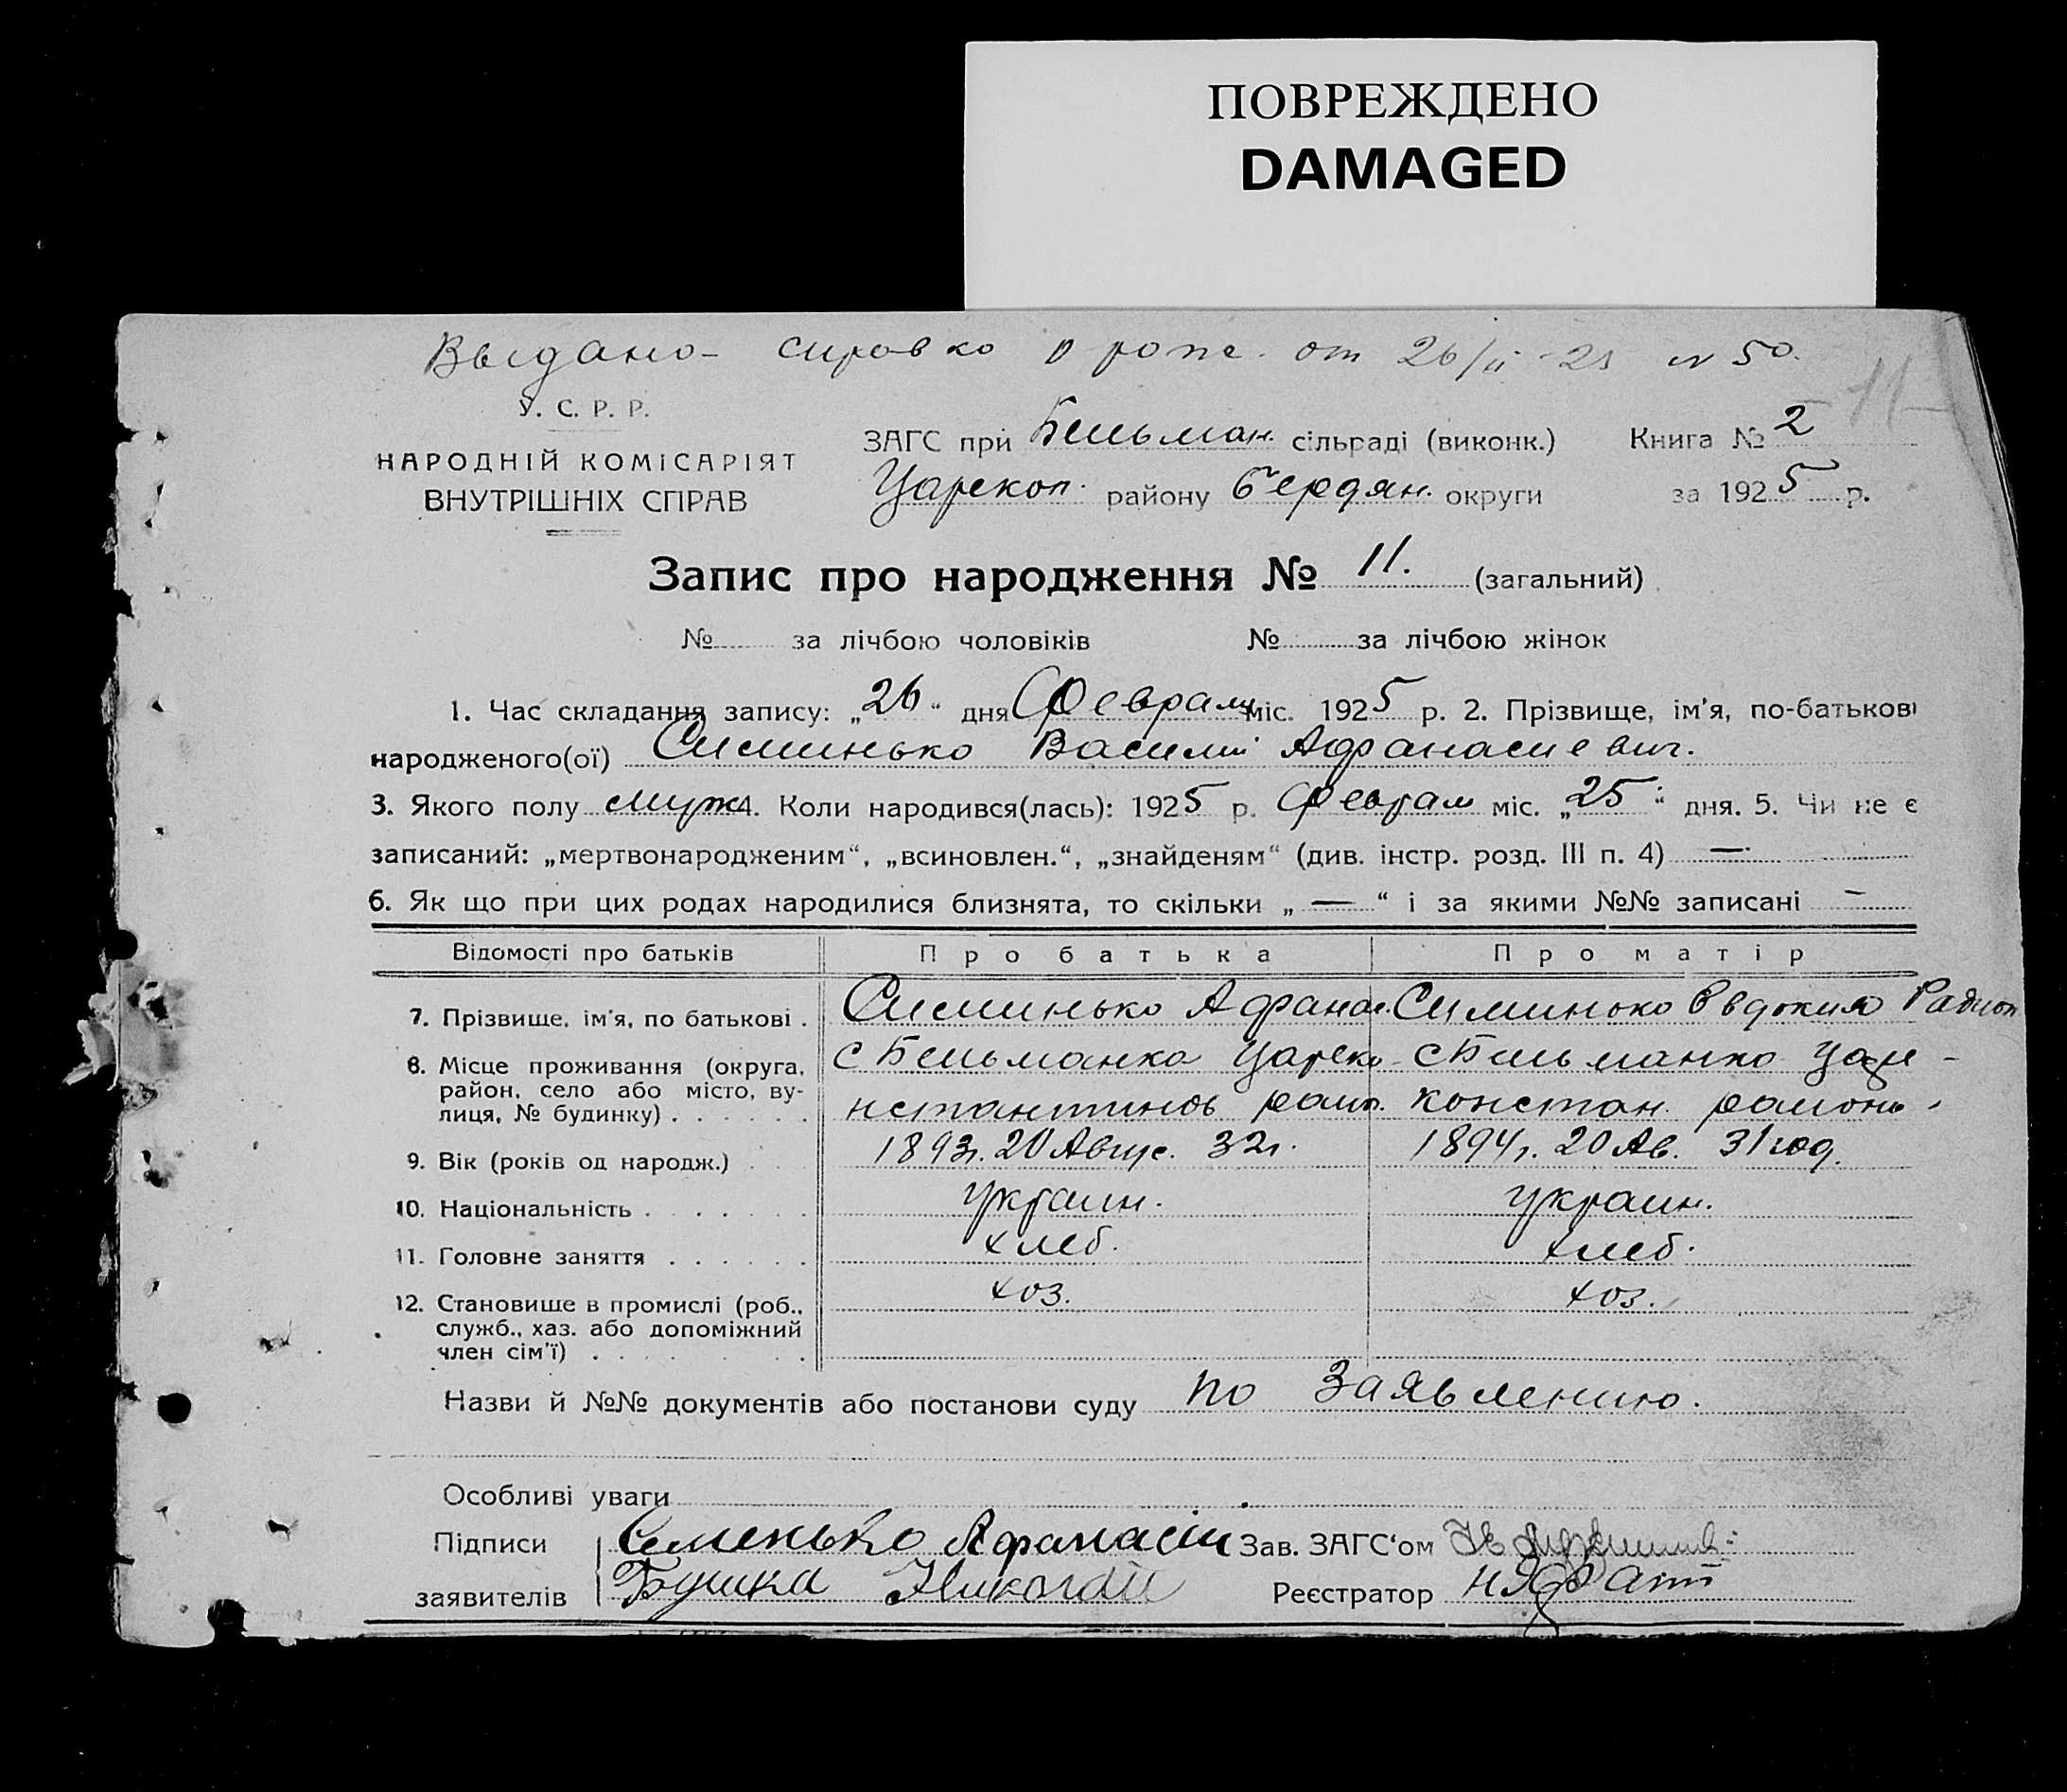 ПОВРЕЖДЕНО
DAMAGED
Выдано - справка о рожде. от 26/ii - 25 N 50.
11
У. С. Р. Р.
НАРОДНІЙ КОМІСАРІЯТ
ВНУТРІШНІХ СПРАВ
ЗАГС при Бельман. сільраді (виконк.) Книга № 2
Царекон. району Бердян. округи за 1925 р.
Запис про народження № 11. (загальний)
№ за лічбою чоловіків № за лічбою жінок
1. Час складання запису: „26“ дня Февраля міс. 1925 р. 2. Прізвище, ім'я, по-батькові
народженого(ої) Симинько Василий Афанасиевич.
3. Якого полу муж 4. Коли народився(лась): 1925 р. Феврал міс. „25“ дня. 5. Чи не є
записаний: „мертвонародженим“, „всиновлен.“, „знайденям“ (див. інстр. розд. III п. 4) —
6. Як що при цих родах народилися близнята, то скільки „ — “ і за якими №№ записані —
Відомості про батьків Про батька Про матір
7. Прізвище, ім'я, по батькові . Симинько Афанас. Симинько Евдокия Радион
8. Місце проживання (округа, с Бельманка Царско- с Бельманка Царе-
район, село або місто, ву-
лиця, № будинку) . . . . . . нстантинов район. констан. района
9. Вік (років од народж.) 1893г. 20 Авгус. 32г. 1894г. 20 Ав. 31 год.
10. Національність . . . . . . . украин. украин.
11. Головне заняття . . . . . . хлеб. хлеб.
12. Становище в промислі (роб., хоз. хоз.
служб., хаз. або допоміжний
член сім'ї) . . . . . . .
Назви й №№ документів або постанови суду по Заявлению.
Особливі уваги
Підписи Семенько Афанасий Зав. ЗАГС'ом
заявителів Николай Реєстратор